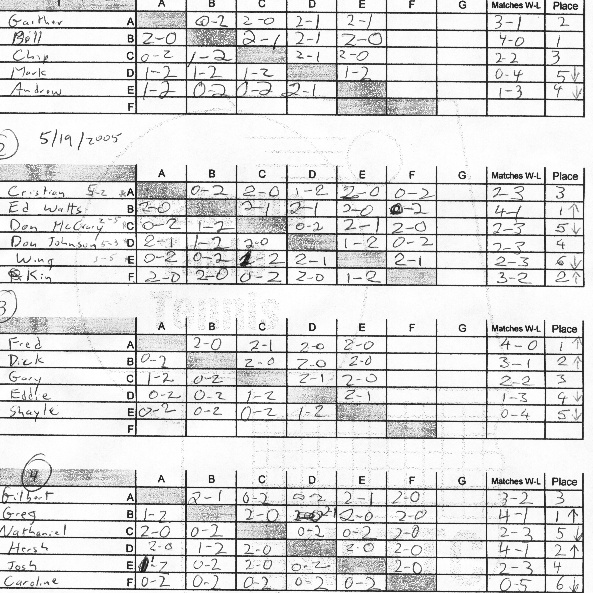 1 A B C D E F G Matches W-L Place
Gaither A 0-2 2-0 2-1 2-1 3-1 2
Bill B 2-0 2-1 2-1 2-0 4-0 1
Chip C 0-2 1-2 2-1 2-0 2-2 3
Mark D 1-2 1-2 1-2 1-2 0-4 5↓
Andrew E 1-2 0-2 0-2 2-1 1-3 4↓
F
2 5/19/2005
A B C D E F G Matches W-L Place
Cristian A 0-2 2-0 1-2 2-0 0-2 2-3 3
Ed Watts B 2-0 2-1 2-1 2-0 0-2 4-1 1↑
Don McCrary C 0-2 1-2 0-2 2-1 2-0 2-3 5↓
Don Johnson D 2-1 1-2 2-0 1-2 0-2 2-3 4
Wing E 0-2 0-2 1-2 2-1 2-1 2-3 6↓
Kin F 2-0 2-0 0-2 2-0 1-2 3-2 2↑
3
A B C D E F G Matches W-L Place
Fred A 2-0 2-1 2-0 2-0 4-0 1↑
Dick B 0-2 2-0 2-0 2-0 3-1 2↑
Gary C 1-2 0-2 2-1 2-0 2-2 3
Eddie D 0-2 0-2 1-2 2-1 1-3 4↓
Shayle E 0-2 0-2 0-2 1-2 0-4 5↓
F
4
A B C D E F G Matches W-L Place
Gilbert A 2-1 0-2 0-2 2-1 2-0 3-2 3
Greg B 1-2 2-0 2-1 2-0 2-0 4-1 1↑
Nathaniel C 2-0 0-2 0-2 0-2 2-0 2-3 5↓
Hersh D 2-0 1-2 2-0 2-0 2-0 4-1 2↑
Josh E 1-2 0-2 2-0 0-2 2-0 2-3 4
Caroline F 0-2 0-2 0-2 0-2 0-2 0-5 6↓